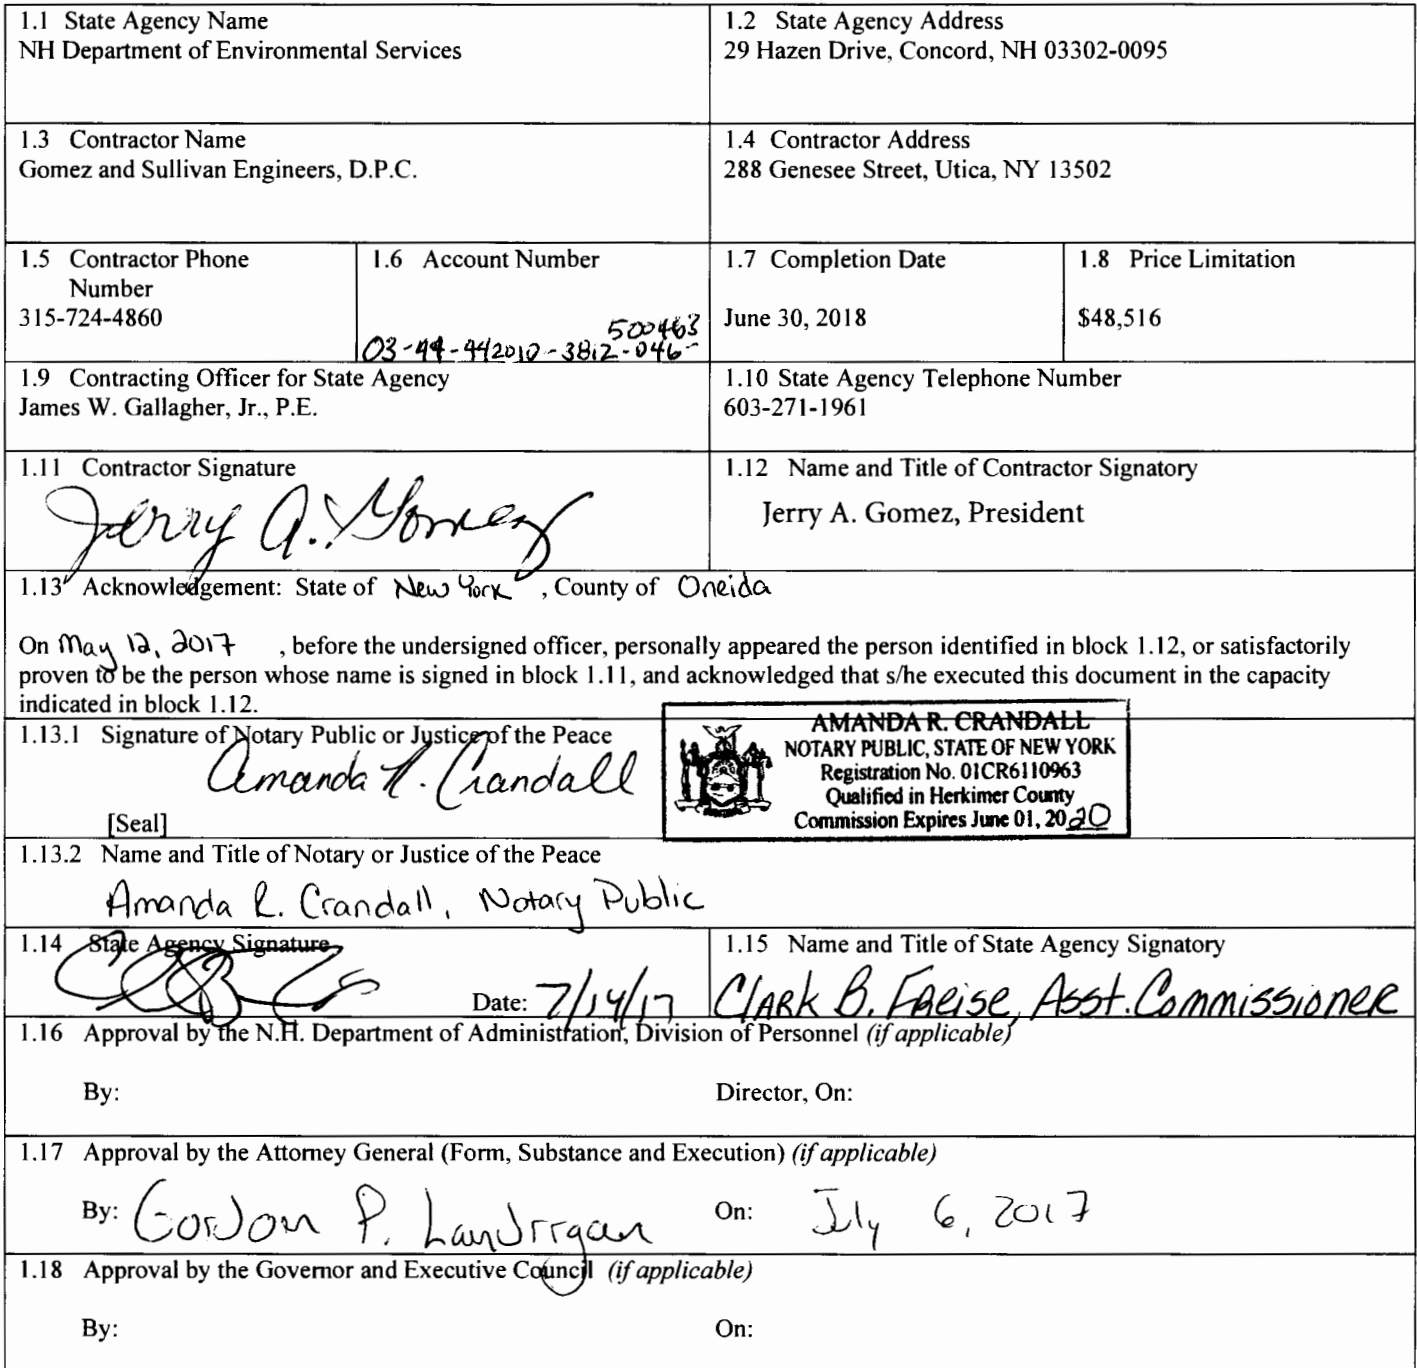 1.1 State Agency Name
NH Department of Environmental Services
1.2 State Agency Address
29 Hazen Drive, Concord, NH 03302-0095
1.3 Contractor Name
Gomez and Sullivan Engineers, D.P.C.
1.4 Contractor Address
288 Genesee Street, Utica, NY 13502
1.5 Contractor Phone
Number
315-724-4860
1.6 Account Number
500463
03-44-442010-3812-046-
1.7 Completion Date
June 30, 2018
1.8 Price Limitation
$48,516
1.9 Contracting Officer for State Agency
James W. Gallagher, Jr., P.E.
1.10 State Agency Telephone Number
603-271-1961
1.11 Contractor Signature
Jerry A. Gomez
1.12 Name and Title of Contractor Signatory
Jerry A. Gomez, President
1.13 Acknowledgement: State of New York , County of Oneida
On May 12, 2017 , before the undersigned officer, personally appeared the person identified in block 1.12, or satisfactorily
proven to be the person whose name is signed in block 1.11, and acknowledged that s/he executed this document in the capacity
indicated in block 1.12.
1.13.1 Signature of Notary Public or Justice of the Peace
Amanda R. Crandall
[Seal]
AMANDA R. CRANDALL
NOTARY PUBLIC, STATE OF NEW YORK
Registration No. 01CR6110963
Qualified in Herkimer County
Commission Expires June 01, 2020
1.13.2 Name and Title of Notary or Justice of the Peace
Amanda R. Crandall, Notary Public
1.14 State Agency Signature
Date: 7/14/17
1.15 Name and Title of State Agency Signatory
Clark B. Freise, Asst. Commissioner
1.16 Approval by the N.H. Department of Administration, Division of Personnel (if applicable)
By:
Director, On:
1.17 Approval by the Attorney General (Form, Substance and Execution) (if applicable)
By: Gordon P. Landrigan
On: July 6, 2017
1.18 Approval by the Governor and Executive Council (if applicable)
By:
On: